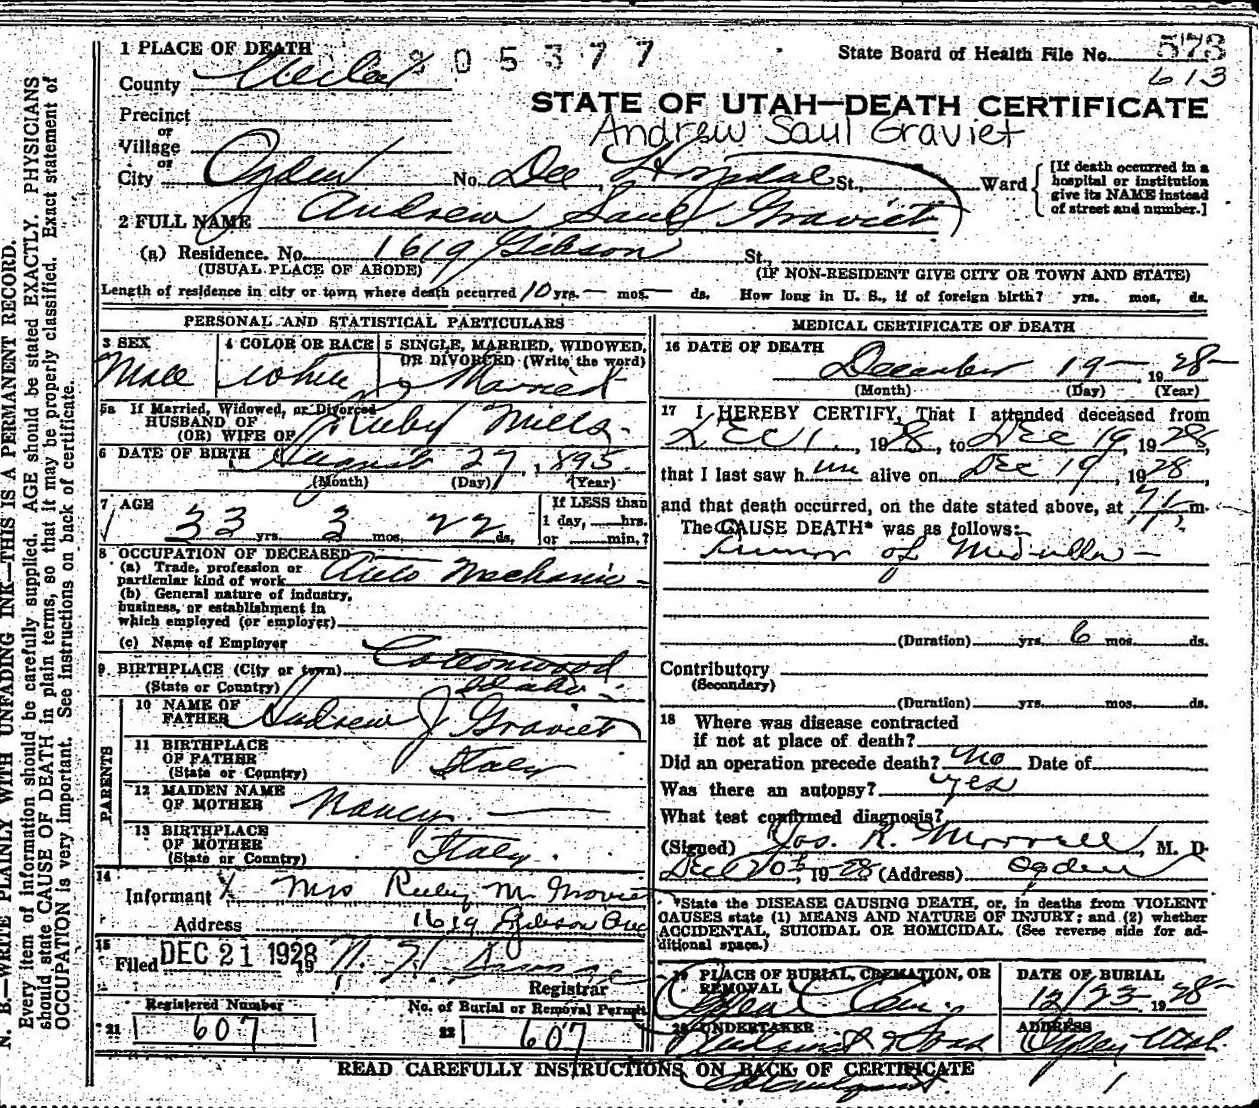 1 PLACE OF DEATH
805377
State Board of Health File No. 573
613
County Weber
STATE OF UTAH—DEATH CERTIFICATE
Precinct
or
Andrew Saul Graviet
Village
or
City Ogden No. Dee Hospital St., Ward
[If death occurred in a hospital or institution give its NAME instead of street and number.]
2 FULL NAME Andrew Saul Graviet
(a) Residence. No. 1619 Gibson St.,
(USUAL PLACE OF ABODE) (IF NON-RESIDENT GIVE CITY OR TOWN AND STATE)
Length of residence in city or town where death occurred 10 yrs. — mos. — ds. How long in U. S., if of foreign birth? yrs. mos. ds.
PERSONAL AND STATISTICAL PARTICULARS
3 SEX
Male
4 COLOR OR RACE
White
5 SINGLE, MARRIED, WIDOWED, OR DIVORCED (Write the word)
Married
5a If Married, Widowed, or Divorced
HUSBAND OF
(OR) WIFE OF Ruby Mills
6 DATE OF BIRTH August 27, 1895
(Month) (Day) (Year)
7 AGE
33 yrs. 3 mos. 22 ds.
If LESS than
1 day, hrs.
or min.?
8 OCCUPATION OF DECEASED
(a) Trade, profession or
particular kind of work Auto Mechanic
(b) General nature of industry,
business, or establishment in
which employed (or employer)
(c) Name of Employer
9 BIRTHPLACE (City or town) Cottonwood
(State or Country) Idaho
PARENTS
10 NAME OF
FATHER Andrew J Graviet
11 BIRTHPLACE
OF FATHER
(State or Country) Italy
12 MAIDEN NAME
OF MOTHER Nancy —
13 BIRTHPLACE
OF MOTHER
(State or Country) Italy
14
Informant X Mrs Ruby M. Graviet
Address 1619 Gibson Ave
15
Filed DEC 21 1928 19
Registrar
Registered Number
21 607
No. of Burial or Removal Permit
22 607
MEDICAL CERTIFICATE OF DEATH
16 DATE OF DEATH
December 19—, 1928—
(Month) (Day) (Year)
17 I HEREBY CERTIFY, That I attended deceased from
Dec 1, 1928, to Dec 19 1928,
that I last saw him alive on Dec 19, 1928,
and that death occurred, on the date stated above, at m.
The CAUSE DEATH* was as follows:
Tumor of Medulla —
(Duration) yrs. 6 mos. ds.
Contributory
(Secondary)
(Duration) yrs. mos. ds.
18 Where was disease contracted
if not at place of death?
Did an operation precede death? No Date of
Was there an autopsy? yes
What test confirmed diagnosis?
(Signed) Jos. R. Morrell, M. D.
Dec 20th, 1928 (Address) Ogden
*State the DISEASE CAUSING DEATH, or, in deaths from VIOLENT
CAUSES state (1) MEANS AND NATURE OF INJURY; and (2) whether
ACCIDENTAL, SUICIDAL OR HOMICIDAL. (See reverse side for additional space.)
19 PLACE OF BURIAL, CREMATION, OR
REMOVAL
Ogden Cem.
DATE OF BURIAL
12/23— 1928—
20 UNDERTAKER
ADDRESS
Ogden Utah
READ CAREFULLY INSTRUCTIONS ON BACK OF CERTIFICATE
N. B.—WRITE PLAINLY WITH UNFADING INK—THIS IS A PERMANENT RECORD.
Every item of information should be carefully supplied. AGE should be stated EXACTLY. PHYSICIANS
should state CAUSE OF DEATH in plain terms, so that it may be properly classified. Exact statement of
OCCUPATION is very important. See instructions on back of certificate.